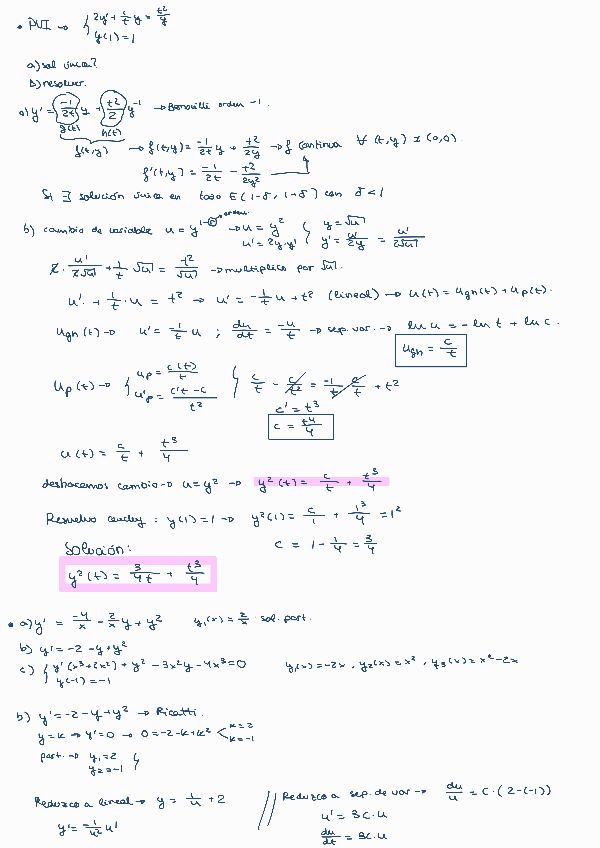 • PVI → { 2y' + 1/t y = t²/y
y(1) = 1
a) sol única?
b) resolver.
a) y' = -1/2t y + t²/2 y⁻¹ → Bernouilli orden -1.
g(t) h(t)
f(t,y) → f(t,y) = -1/2t y + t²/2y → f continua ∀ (t,y) ≠ (0,0).
f'(t,y) = -1/2t - t²/2y²
Sí ∃ solución única en todo E(1-δ, 1+δ) con δ < 1
b) cambio de variable u = y^1-(-1) orden → u = y² { y = √u
u' = 2y·y' y' = u'/2y = u'/2√u
2 · u'/2√u + 1/t √u = t²/√u → multiplico por √u.
u' + 1/t · u = t² → u' = -1/t u + t² (lineal) → u(t) = ugh(t) + up(t).
ugh(t) → u' = -1/t u ; du/dt = -u/t → sep. var. → ln u = -ln t + ln c.
ugh = c/t
up(t) → { up = c(t)/t { c'/t - c/t² = -1/t c/t + t²
u'p = c't - c/t²
c' = t³
c = t⁴/4
u(t) = c/t + t³/4
deshacemos cambio → u = y² → y²(t) = c/t + t³/4
Resuelvo cauchy : y(1) = 1 → y²(1) = c/1 + 1³/4 = 1²
Solución: c = 1 - 1/4 = 3/4
y²(t) = 3/4t + t³/4
• a) y' = -4/x² - 2/x y + y² y₁(x) = 2/x sol. part.
b) y' = -2 - y + y²
c) { y'(x³ + 2x²) + y² - 3x²y - 4x³ = 0 y₁(x) = -2x, y₂(x) = x², y₃(x) = x² - 2x
y(-1) = -1
b) y' = -2 - y + y² → Ricatti.
y = k → y' = 0 → 0 = -2 - k + k² < k = 2
k = -1
part. → y₁ = 2
y₂ = -1
Reduzco a lineal → y = 1/u + 2 // Reduzco a sep. de var → du/u = C · (2 - (-1))
y' = -1/u² u' u' = 3C · u
du/dt = 3C · u